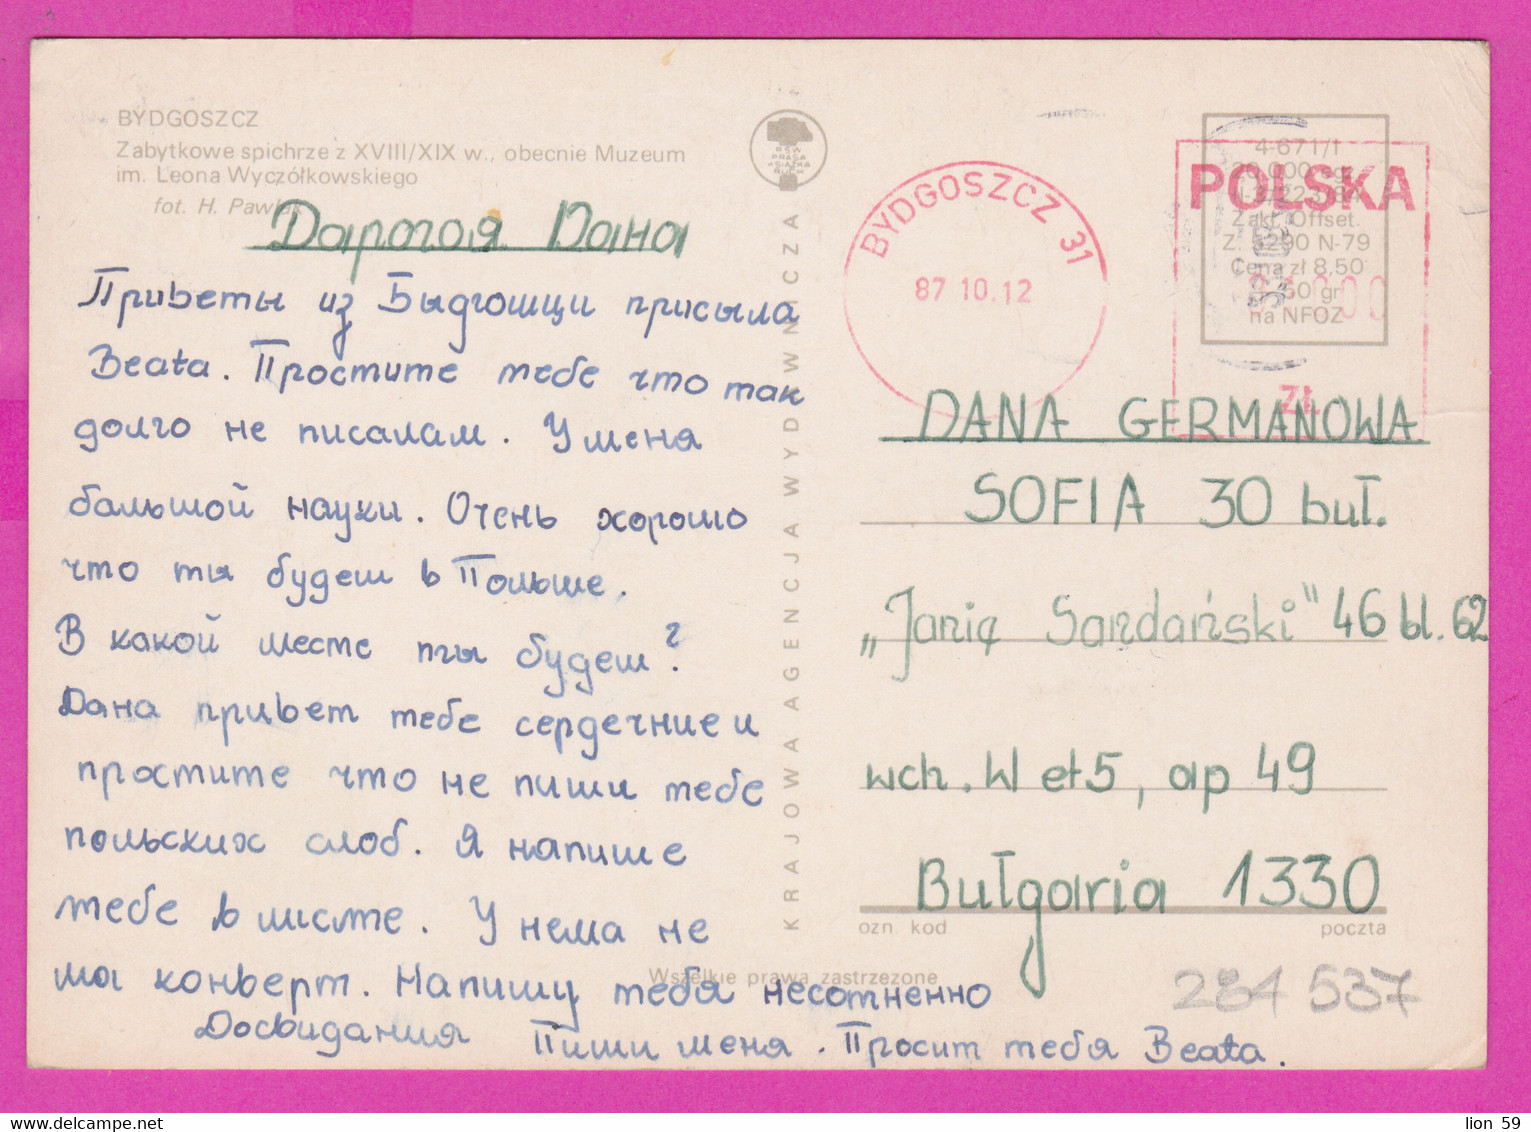 BYDGOSZCZ
Zabytkowe spichrze z XVIII/XIX w., obecnie Muzeum
im. Leona Wyczółkowskiego
fot. H. Pawlak
Дарогая Дана
Приветы из Быдгощци присыла
Beata. Простите тебе что так
долго не писалам. У меня
балшой науки. Очень хорошо
что ты будеш в Польше.
В какой месте ты будеш?
Дана привет тебе сердечние и
простите что не пиши тебе
польских слоб. Я напише
тебе в листе. У нема не
ма конверт. Напишу тебя несотненно
Досвидания Пиши меня. Просит тебя Beata.
KRAJOWA AGENCJA WYDAWNICZA
RSW
PRASA
KSIĄŻKA
RUCH
BYDGOSZCZ 31
87 10.12
POLSKA
ZŁ
4-671/I
Zakł. Offset.
Z. 5290 N-79
Cena zł 8,50
50 gr
na NFOZ
DANA GERMANOWA
SOFIA 30 buł.
„Janię Sandański" 46 bl. 62
wch. W et5, ap 49
Bułgaria 1330
ozn. kod poczta
Wszelkie prawa zastrzezone
284 537
www.delcampe.net
lion 59